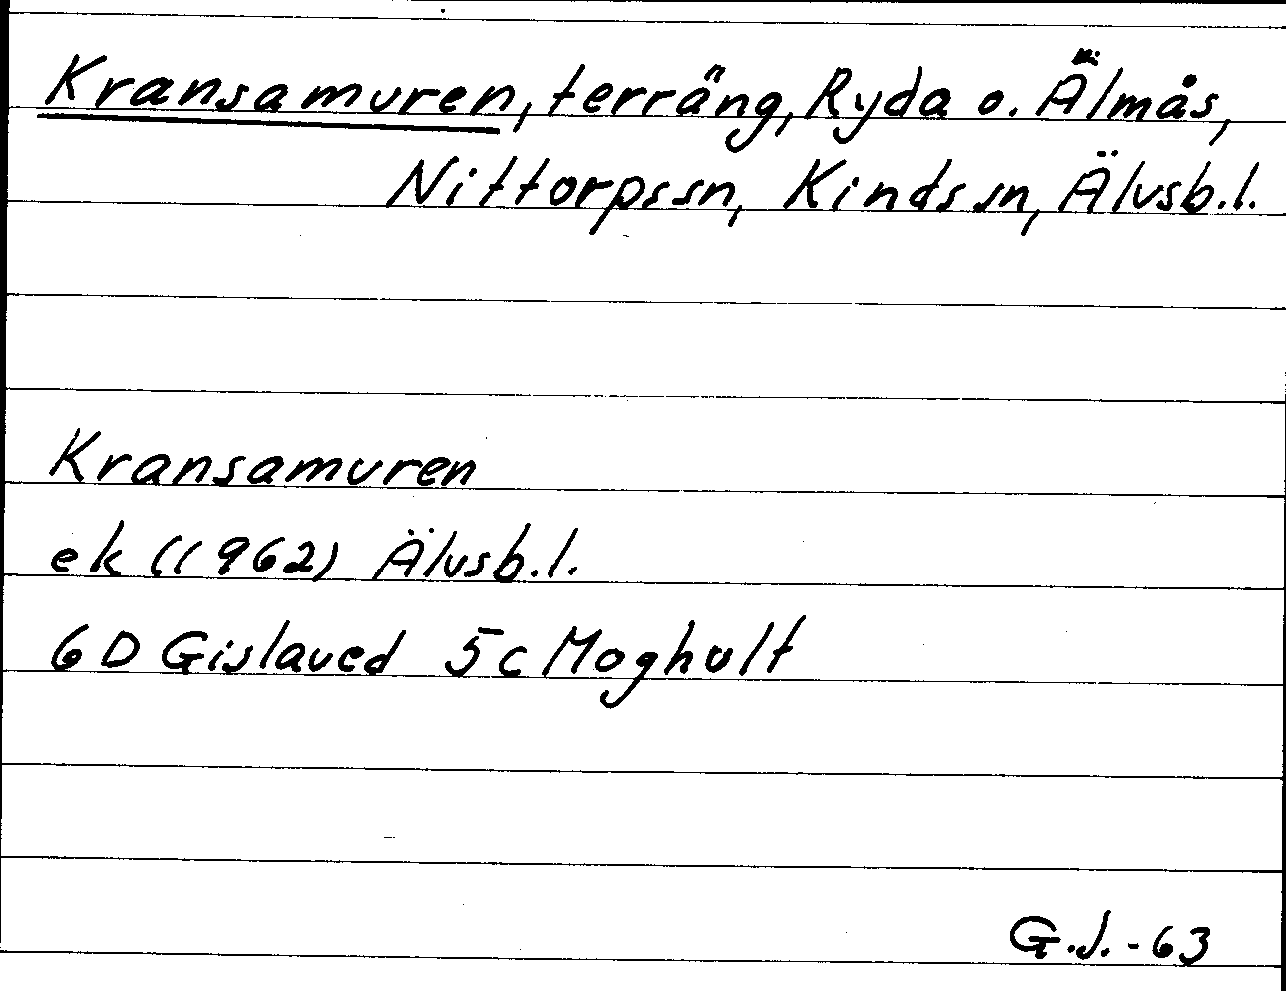 Kransamuren, terräng, Ryda o. Älmås,
Nittorpssn, Kinds sn, Älvsb.l.
Kransamuren
ek (1962) Älvsb.l.
6D Gislaved 5c Moghult
G.J.-63